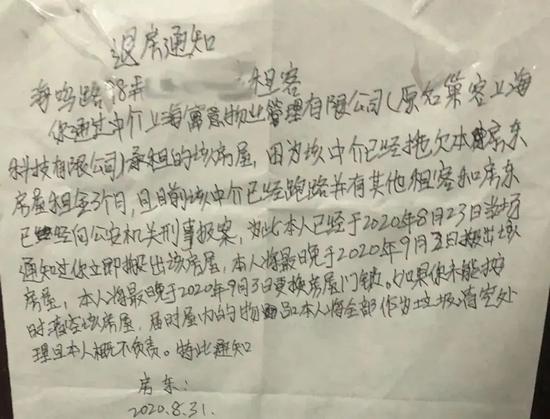 退房通知
海鸣路18弄 租客
你通过中介上海寓意物业管理有限公司(原名巢客上海
科技有限公司)承租的该房屋，因为该中介已经拖欠本房东
房屋租金3个月，且目前该中介已经跑路并有其他租客和房东
已经向公安机关刑事报案，为此本人已经于2020年8月23日当场
通知过你立即搬出该房屋，本人将最晚于2020年9月3日搬出该
房屋，本人将最晚于2020年9月3日更换房屋门锁。如果你未能按
时清空该房屋，届时屋内的物品本人将全部作为垃圾清空处
理且本人概不负责。特此通知
房东：
2020.8.31.